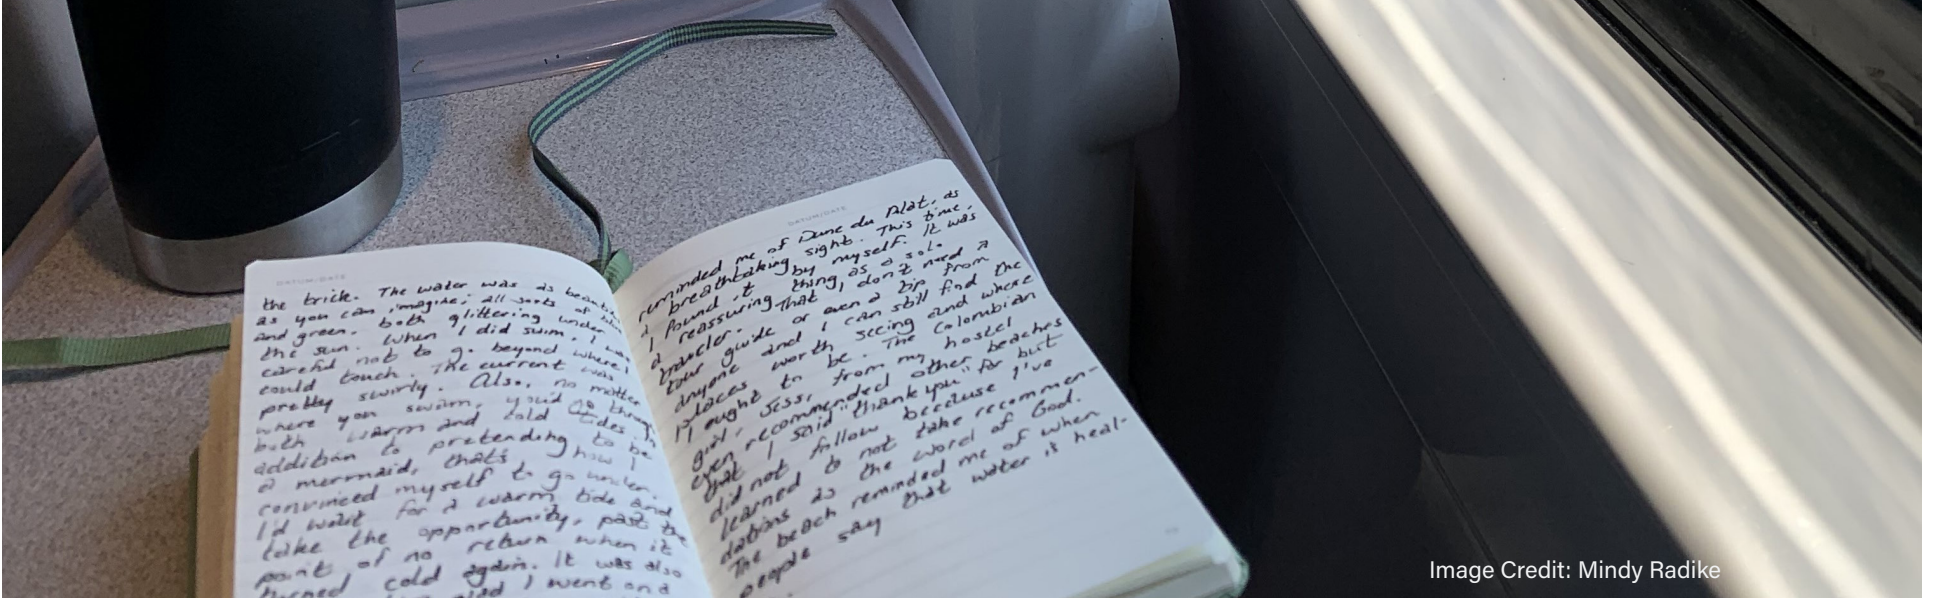 DATUM/DATE
the trick. The water was as
as you can imagine; all sorts of
and green, both glittering under
the sun. When I did swim, I was
careful not to go beyond where I
could touch. The current was
pretty swirly. Also, no matter
where you swam, you'd go through
both warm and cold tides. In
addition to pretending to be
a mermaid, that's how I
convinced myself to go under.
I'd wait for a warm tide and
take the opportunity, past the
point of no return when it
turned cold again. It was also
I went on a
DATUM/DATE
reminded me of Dune du Pilat, as
a breathtaking sight. This time,
I found it by myself. It was
a reassuring thing as a solo
traveler. That I don't need a
tour guide or even a tip from
anyone and I can still find the
places worth seeing and where
I ought to be. The Colombian
girl, Jess, from my hostel
even recommended other beaches
that I said "thank you" for but
did not follow because I've
learned to not take recommen-
dations as the word of God.
The beach reminded me of when
people say that water is heal-
Image Credit: Mindy Radike